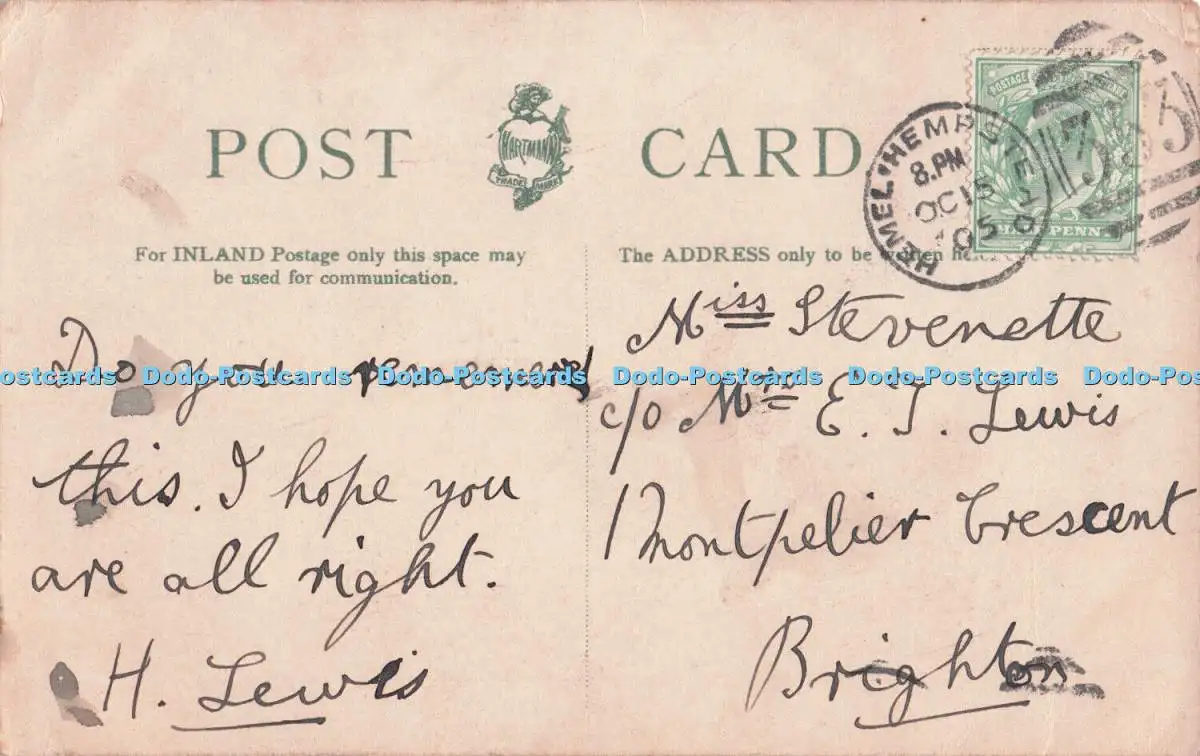 POST CARD
HARTMANN
TRADE MARK
For INLAND Postage only this space may
be used for communication.
The ADDRESS only to be written here.
HEMEL·HEMPSTEAD
8.PM
OC 15
05
POSTAGE
HALFPENNY
Do you remember
this. I hope you
are all right.
H. Lewis
Miss Stevenette
c/o Mrs E. T. Lewis
1 Montpelier Crescent
Brighton
Dodo-Postcards Dodo-Postcards Dodo-Postcards Dodo-Postcards Dodo-Postcards Dodo-Postcards